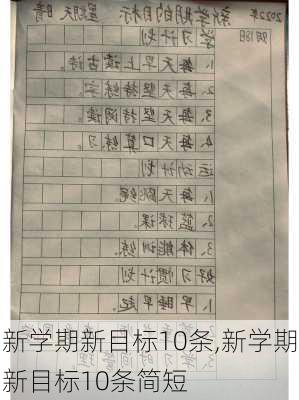 2022年 新学期的目标 星期天 晴
学习计划
1、每天早上读古诗。
2、每天坚持练字。
3、每天坚持阅读。
4、每天口算练习。
运动计划
1、每天跳绳。
2、篮球课。
3、体能训练。
好习惯计划
1、早睡早起。
新学期新目标10条,新学期
新目标10条简短